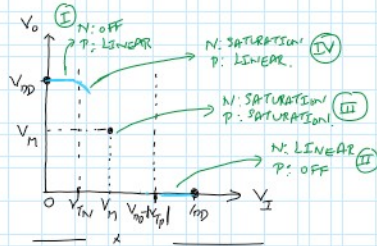 V₀
I
N: OFF
P: LINEAR
N: SATURATION
P: LINEAR.
IV
V_DD
N: SATURATION
P: SATURATION.
III
V_M
N: LINEAR
P: OFF
II
0 V_TN V_M V_DD-|V_TP| V_DD V_I
x